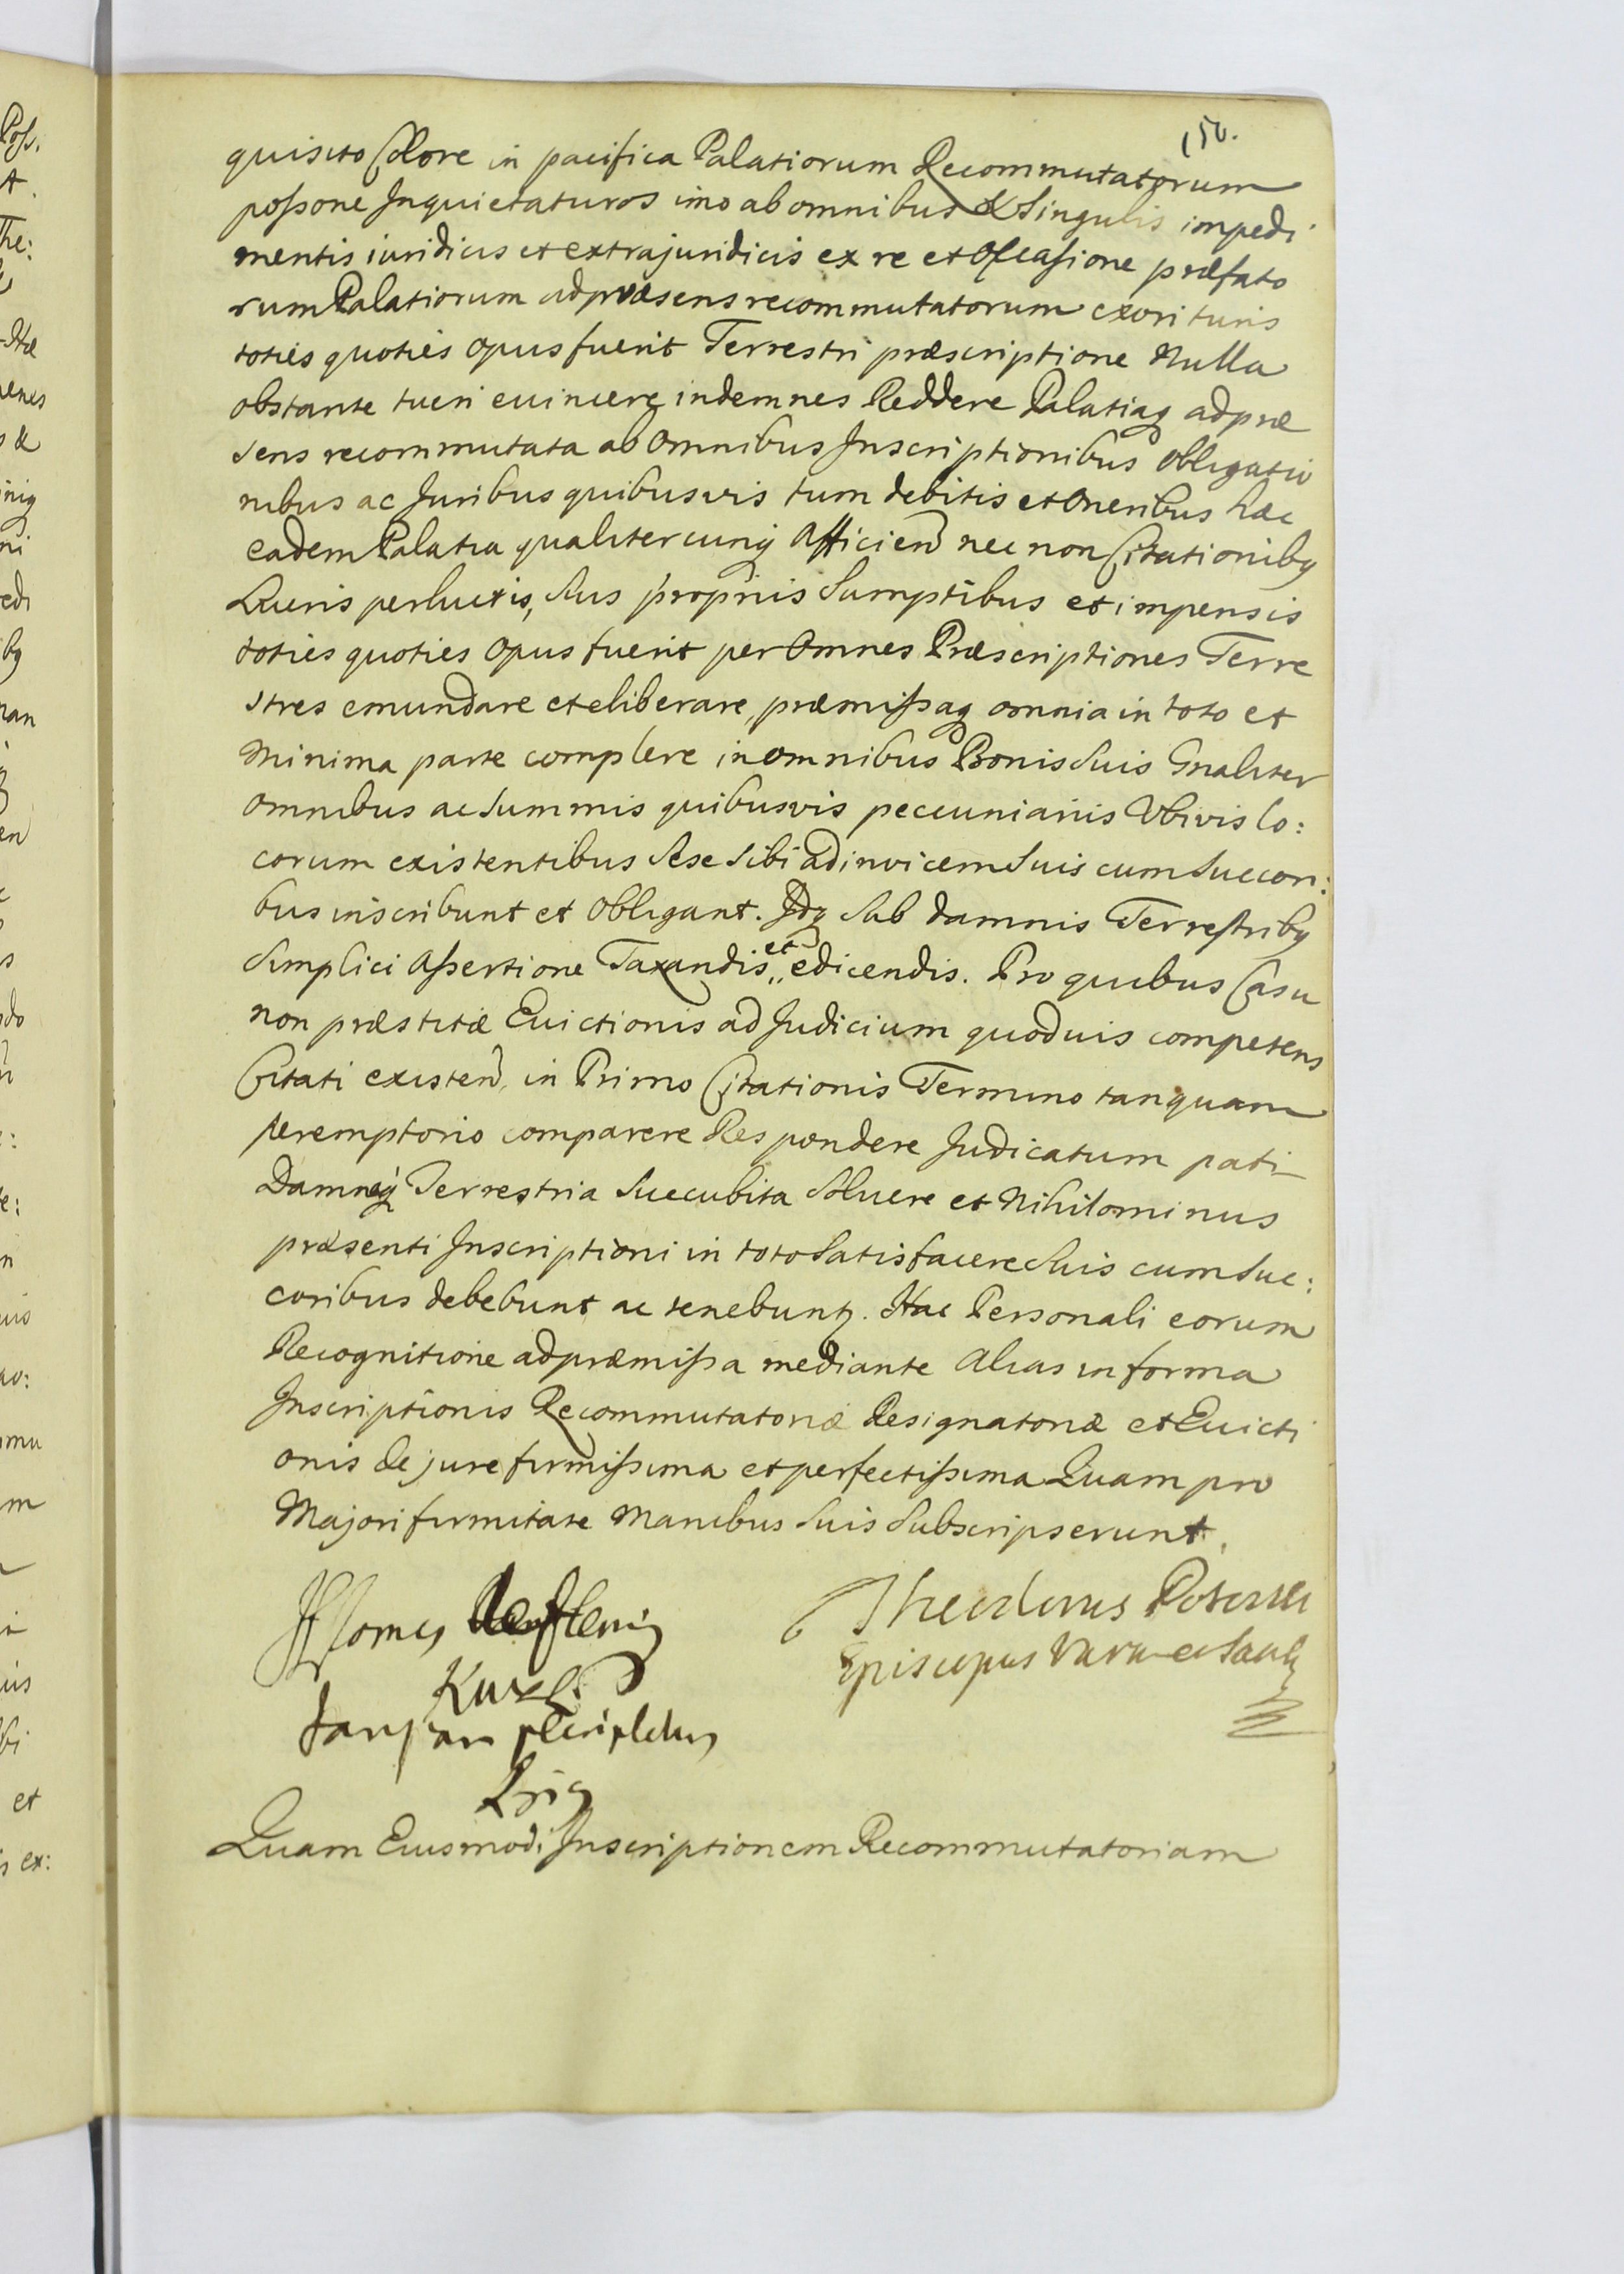 150.
quisito Colore in pacifica Palatiorum Recommutatorum
possone Inquietaturos imo ab omnibus & Singulis impedi
mentis iuridicis et extrajuridicis ex re et Occasione præfato
rum Palatiorum ad præsens recommutatorum exorituris
toties quoties opus fuerit Terrestri præscriptione Nulla
obstante tueri euincere indemnes Reddere Palatiaq adpræ
sens recommutata ab Omnibus Inscriptionibus obligatio
nibus ac Juribus quibusvis tum debitis et Oneribus hæc
eadem Palatia qualitercunq Afficien nec non Citationibq
Lucris perlucris, Suis proprijs Sumptibus et impensis
toties quoties Opus fuerit per Omnes Præscriptiones Terre
stres emundare et eliberare, præmissaq omnia in toto et
Minima parte complere in omnibus Bonis Suis Gnaliter
omnibus ac Summis quibusvis peccuniariis Vbivis lo:
corum existentibus Sese Sibi ad invicem Suis cum Succori:
bus inscribunt et Obligant. Idq Sub damnis Terrestribq
Simplici Assertione Taxandis et edicendis. Pro quibus Casu
non præstitæ Euictionis ad Judicium quoduis competens
Citati existen, in Primo Citationis Termino tanquam
peremptorio comparere Respondere Judicatum pati
Damnaq Terrestria Succubita Soluere et Nihilominus
præsenti Inscriptioni in toto Satisfacere Suis cum Suc:
coribus debebunt ac tenebunt. Hac Personali eorum
Recognitione ad præmissa mediante Alias in forma
Inscriptionis Recommutatoriæ Resignatoriæ et Euicti
onis de jure firmissima et perfectissima Quam pro
Majori firmitate Manibus Suis Subscripserunt.
Theodorus Potocki
Episcopus
Quam Eiusmodi Inscriptionem Recommutatoriam